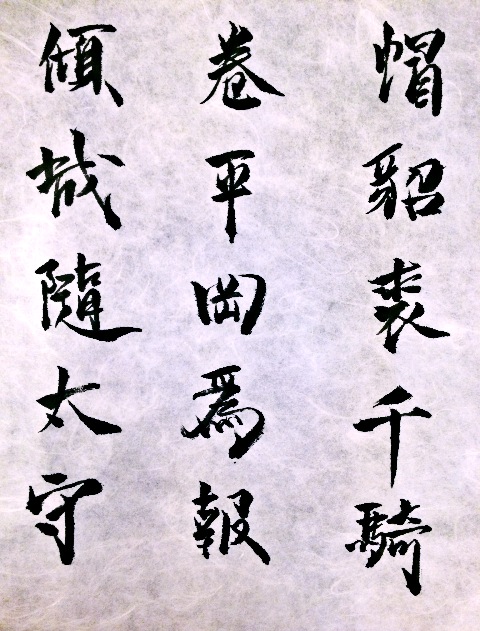 帽貂裘千騎
卷平岡為報
傾城隨太守